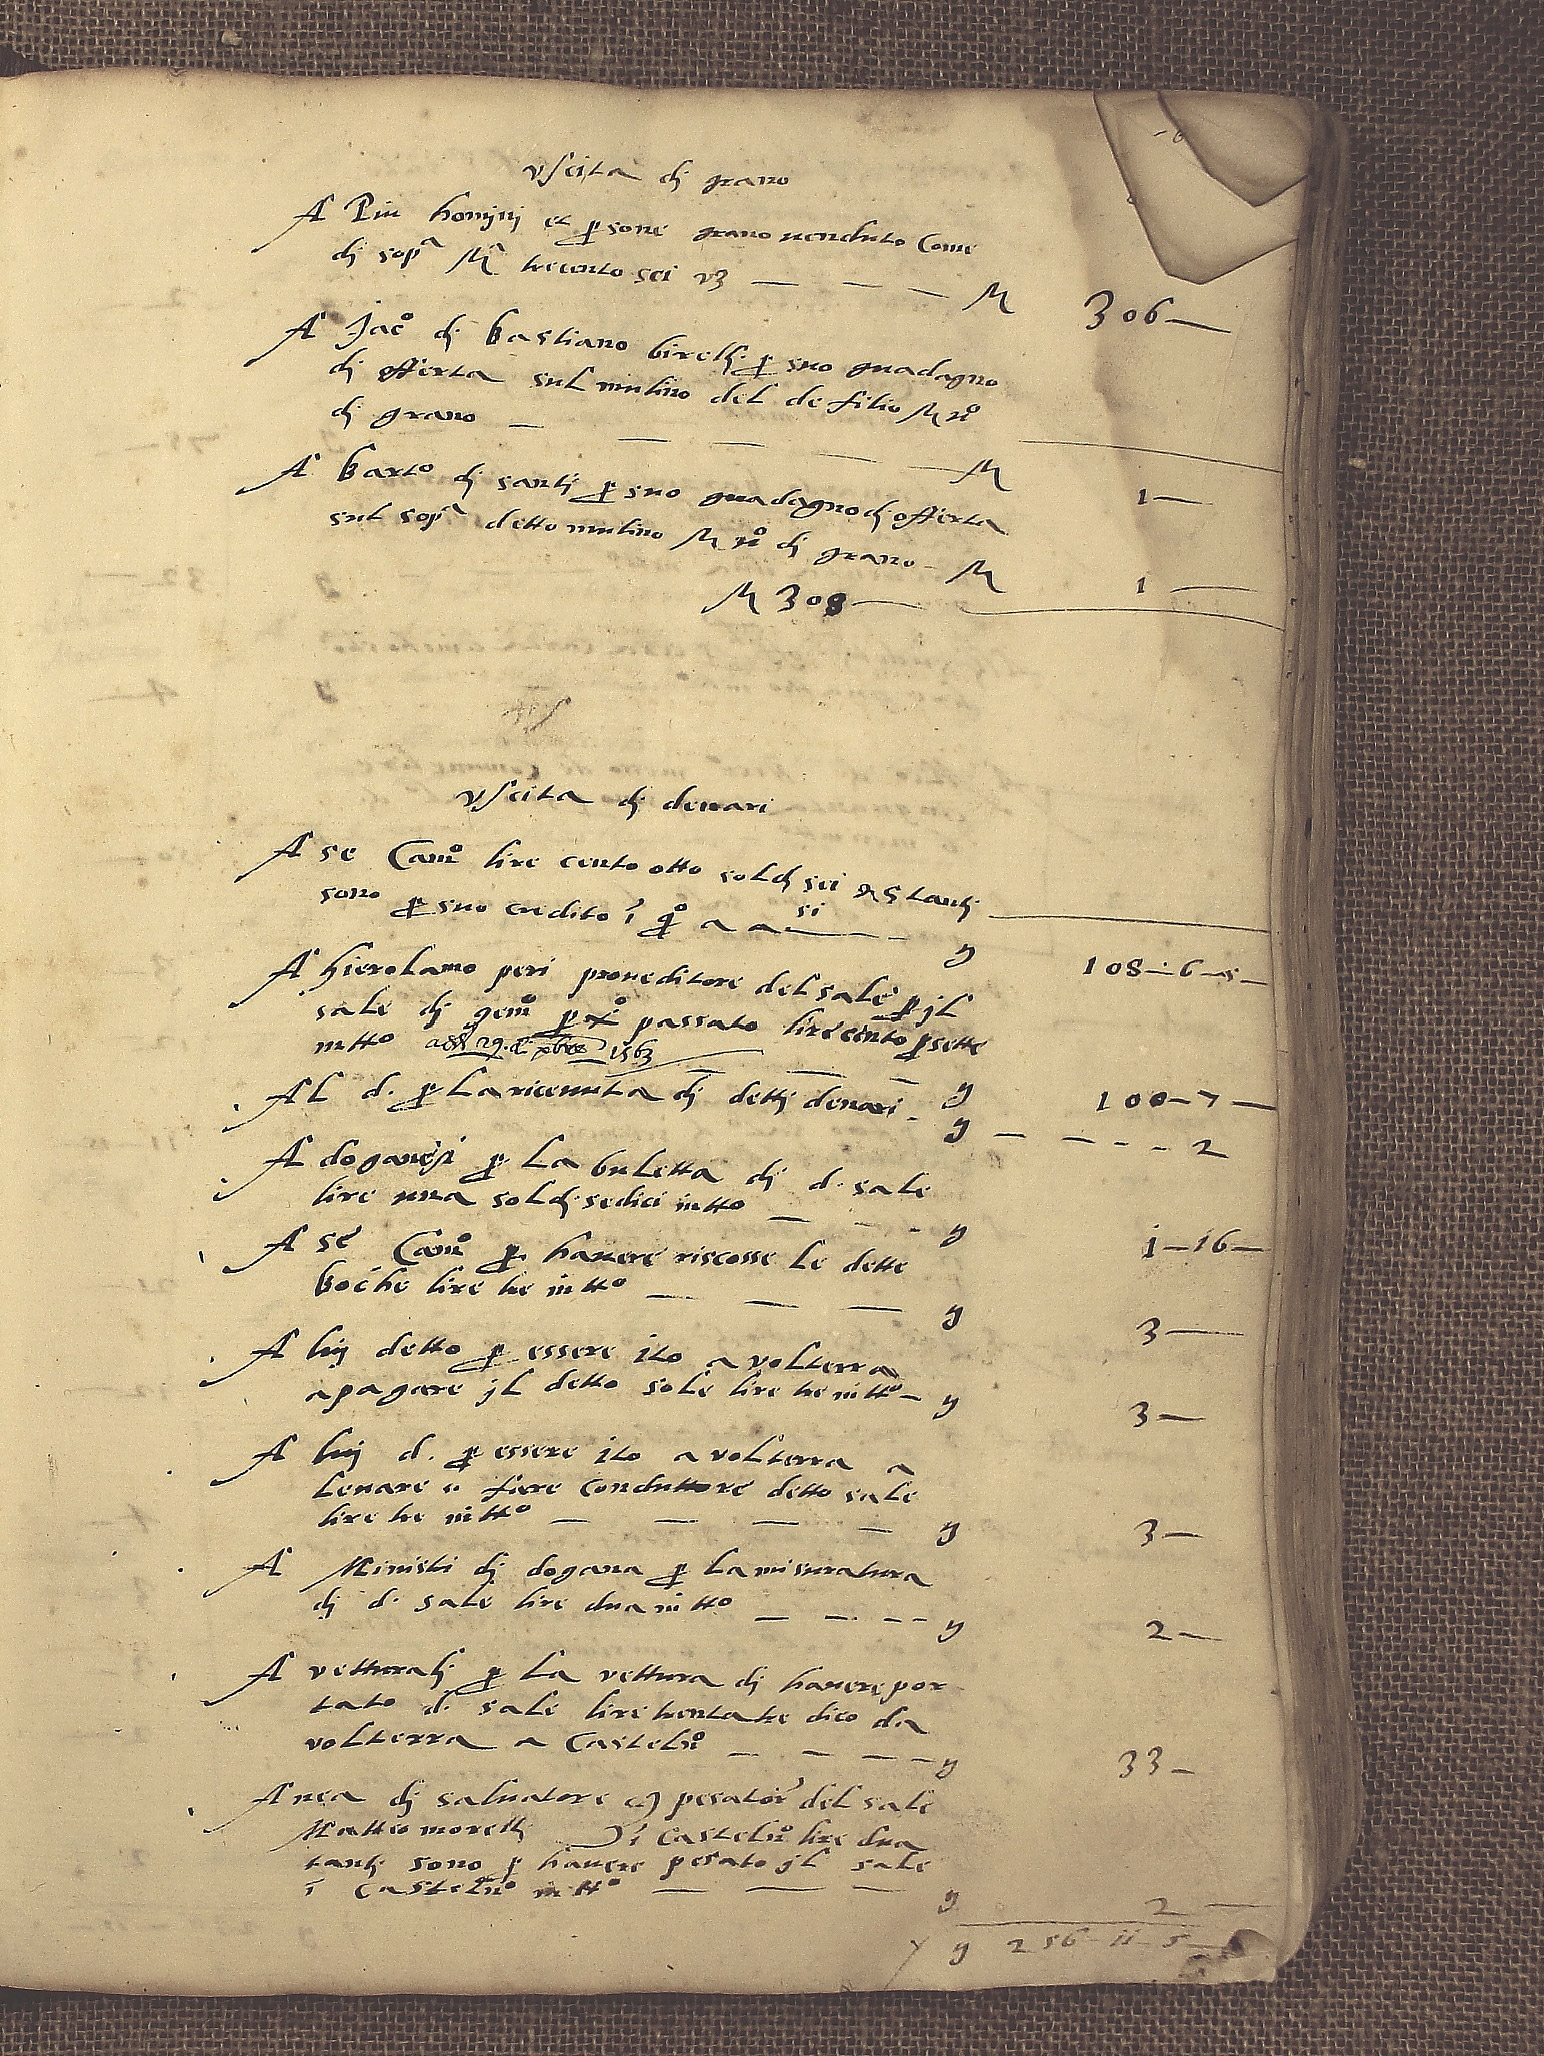 uscita dj grano
A Piu homini et p sone grano uenduto Come
dj sopa Ma trecento sei 
M 306—
A Jaco dj bastiano birellj p suo guadagno
dj offerta sul mulino del de filio M no
dj grano — M 1—
A barto dj santj p suo guadagno dj offerta
sul sopa detto mulino M no dj grano — M 1—
M 308—
uscita dj denari
A se Camo lire cento otto soldj sei et
sono p suo credito ī qo a a si — y 108—6—5—
A hierolamo peri proueditore del sale p jl
sale dj geno p xo passato lire cento sette
in tto adi 29 di xbre 1563
— y 100—7—
Al d. p la riceuuta dj dettj denari — y — 2
A doganejri p la buletta dj d. sale
lire una soldj sedici in tto — y 1—16—
A se Camo p hauere riscosse le dette
boche lire tre in tto — y 3—
A luj detto p essere ito a uolterra
a pagare jl detto sale lire tre in tto — y 3—
A luj d. p essere ito a uolterra a
leuare o fare conduttore detto sale
lire tre in tto — y 3—
A Ministri dj dogana p la misuratura
dj d. sale lire dua in tto — y 2—
A vetturalj p la vettura dj hauere por
tato d. sale lire trenta tre dico da
volterra a Castelno — y 33—
A nea dj saluatore pesator del sale
Matteo morellj ī Castelno lire dua
tantj sono p hauere pesato jl sale
ī Castelno in tto — y 2—
y 256—11—5—